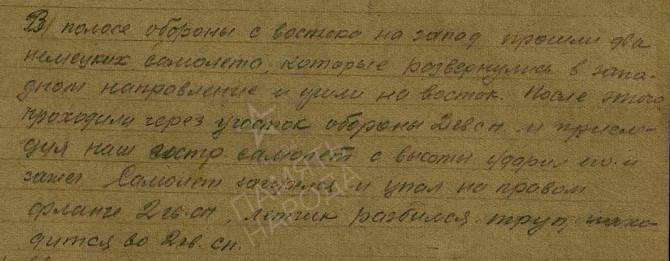 В полосе обороны с востока на запад прошли два
немецких самолета, которые развернулись в запа-
дном направление и ушли на восток. После этого
проходили через участок обороны 2 гв сп. и
наш истр. самолет с высоты ударил его и
зажег Самолет загорелся и упал на правом
фланге 2 гв. сп, летчик разбился. труп нахо-
дится во 2 гв. сп.
ПАМЯТЬ
НАРОДА